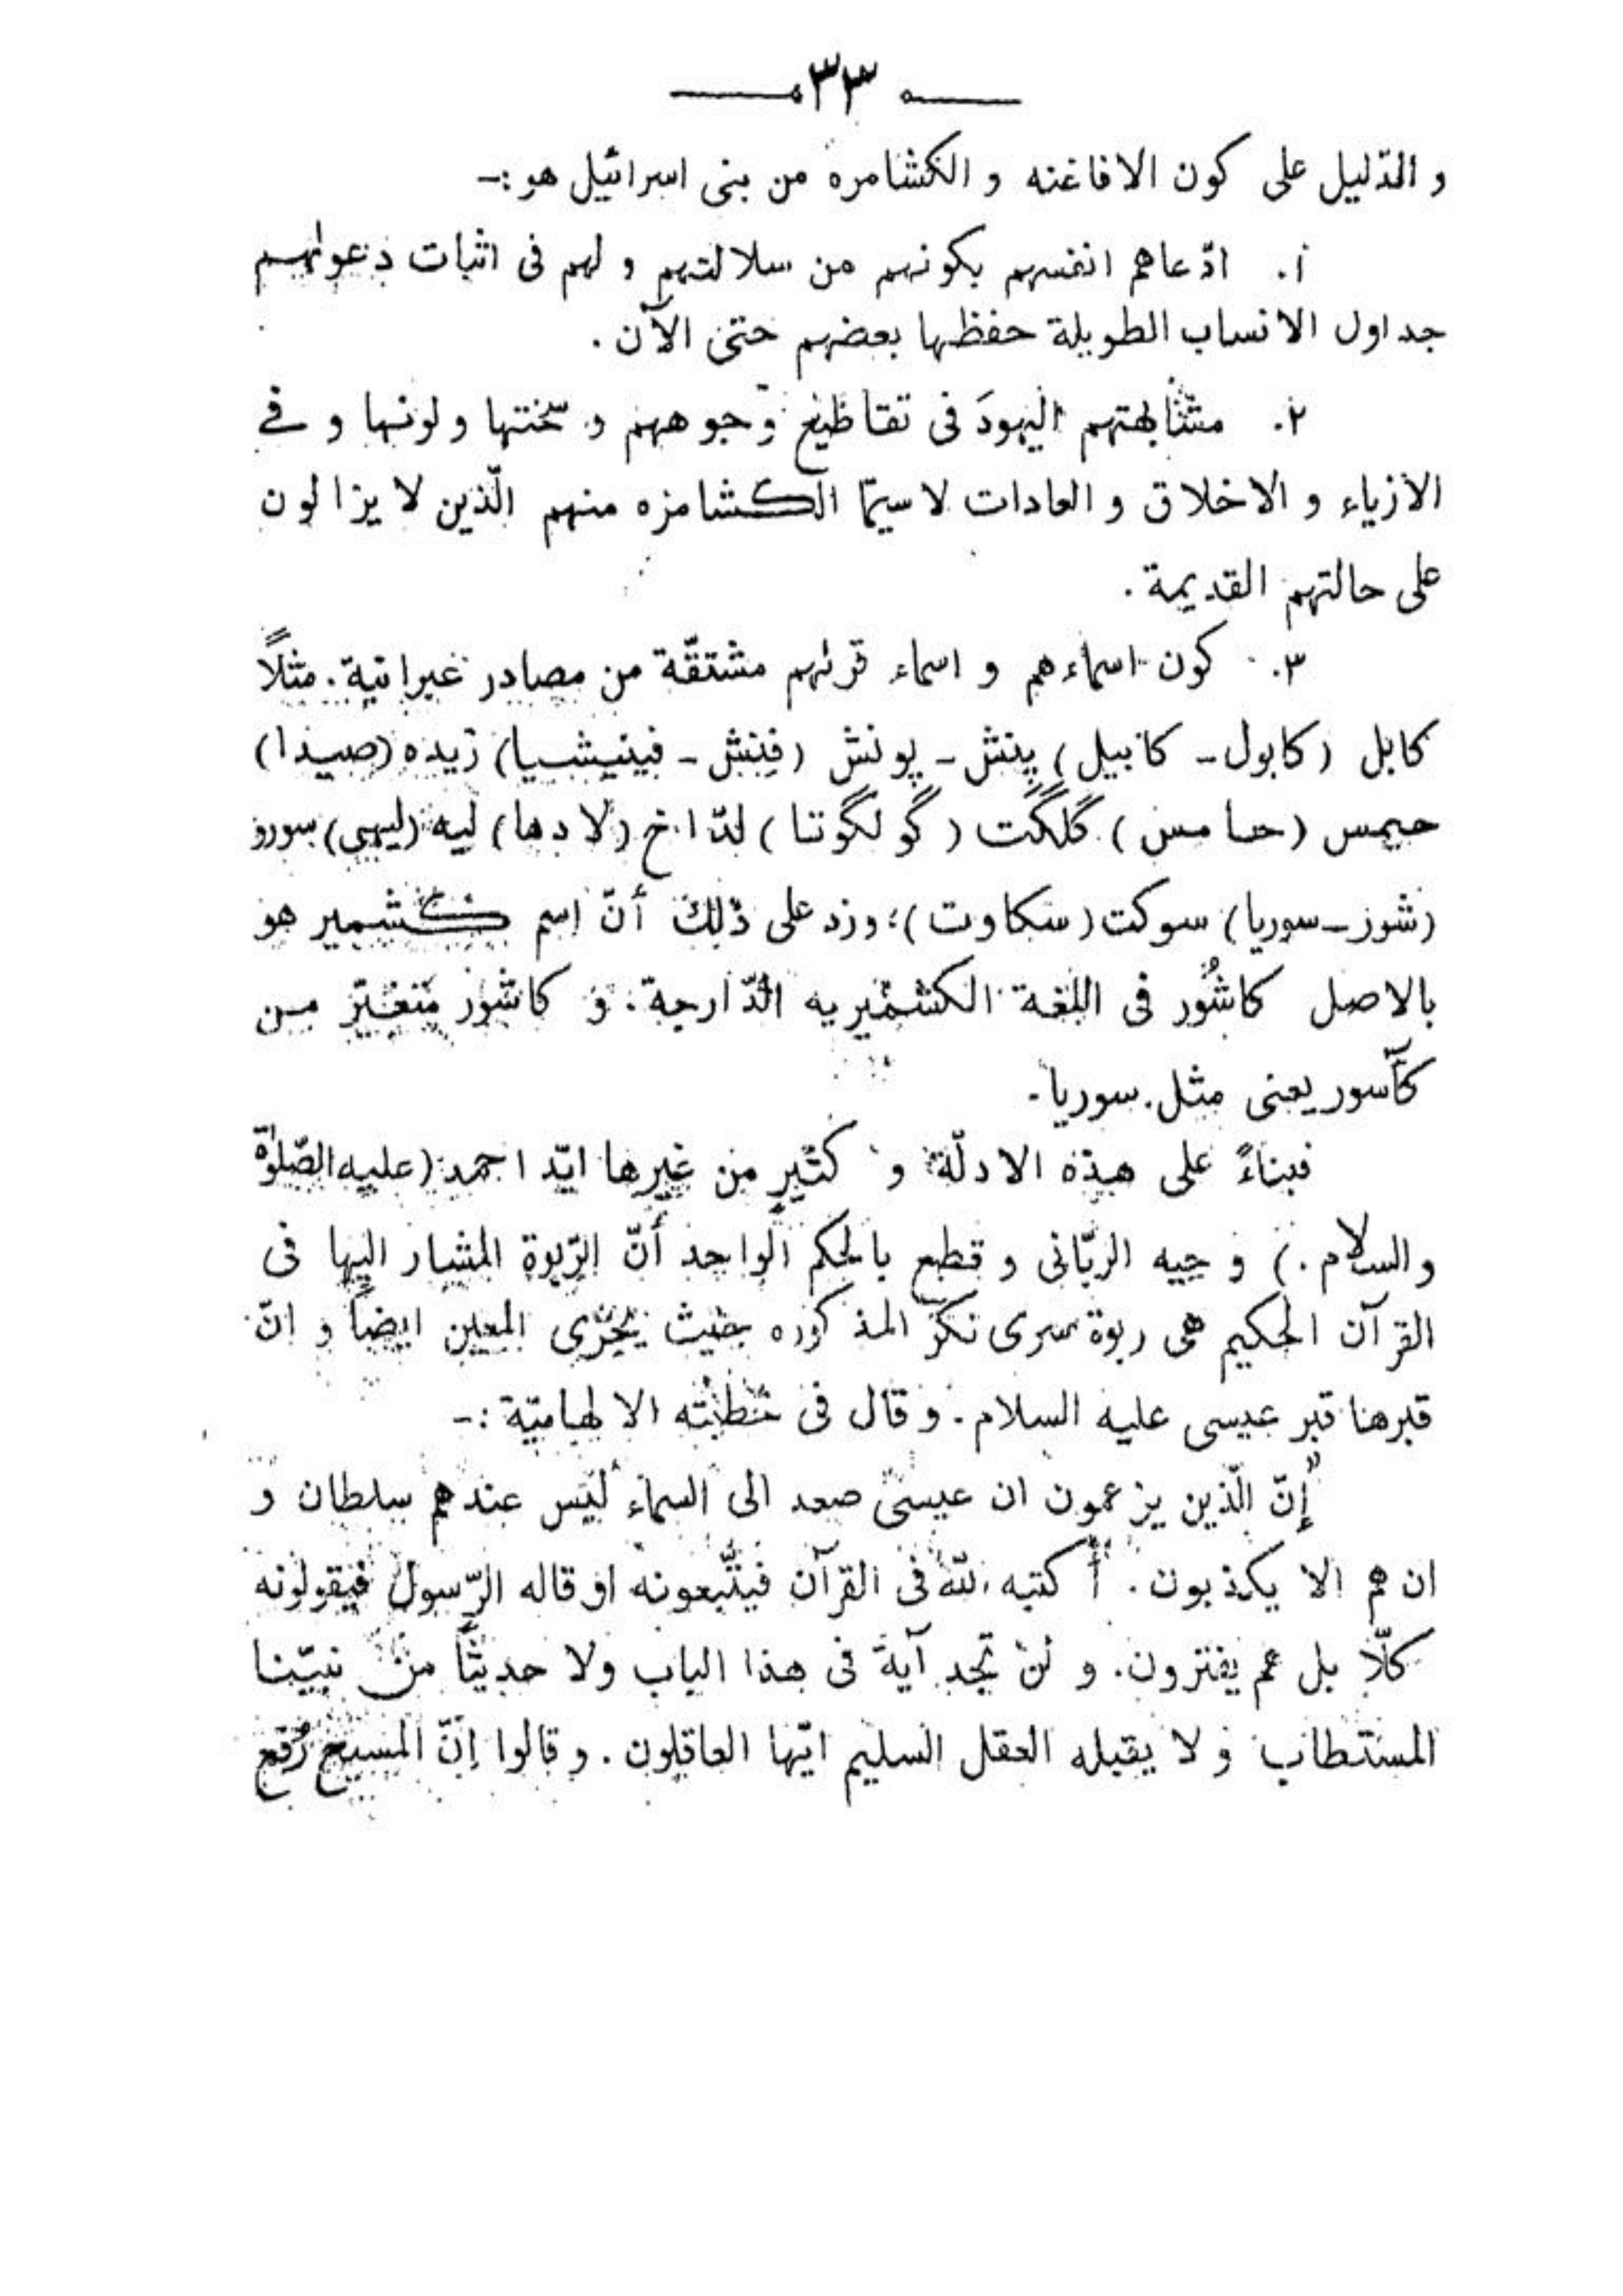 ٣٣
و الدّليل على كون الافاغنه و الكشامره من بنى اسرائيل هو :-
١. ادّعاهم انفسهم بكونهم من سلالتهم و لهم فى اثبات دعوٰىهم
جداول الانساب الطويلة حفظها بعضهم حتى الآن .
٢. مشابهتهم اليهودَ فى تقاطيع وجوههم و سحنتها ولونها و فے
الازياء و الاخلاق و العادات لا سيّما الكشامره منهم الّذين لا يزالون
على حالتهم القديمة .
٣. كون اسماءهم و اسماء قرىٰهم مشتقّة من مصادر عبرانية. مثلاً
كابل (كابول - كابيل) پنش - پونش (فِنش - فينيشيا) زيده (صيدا)
حيمس (حامس) گلگت (گولگوتا) لدّاخ (لادها) ليه (ليهى) سورو
(شور - سوريا) سوكت (سكاوت)؛ وزد على ذلك أنّ اسم كشمير هو
بالاصل كاشُور فى اللغة الكشميريه الدّارجة. و كاشور متغيّر من
كآسور يعنى مثل سوريا -
فبناءً على هذه الادلّة و كثيرٍ من غيرها ايّد احمد (عليه الصّلوٰة
والسلام.) وحيه الربّانى و قطع بالحكم الواحد أنّ الرّبوة المشار اليها فى
القرآن الحكيم هى ربوة سرى نكر المذكوره حيث يجرى المعين ايضاً و انّ
قبرها قبر عيسى عليه السلام. و قال فى خطبته الالهاميّة :-
"إنّ الّذين يزعمون ان عيسىٰ صعد الى السماء ليس عندهم سلطان و
ان هم الا يكذبون. أ كتبه الله فى القرآن فيتّبعونه او قاله الرّسول فيقولونه
كلّا بل هم يفترون. و لن تجد آية فى هذا الباب ولا حديثاً من نبيّنا
المستطاب و لا يقبله العقل السليم ايّها العاقلون. و قالوا إنّ المسيح رُفع